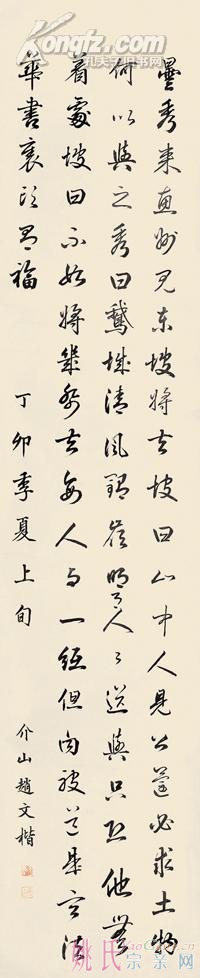 曇秀來惠州見東坡將去坡曰山中人見公還必求土物
何以與之秀曰鵝城清風鶴嶺明月人々送與只恐他無
着處坡曰不如將幾紙去每人与一紙但向彼道是言法
華書裏頭有福
丁卯季夏上旬
介山趙文楷
Kongfz.com
孔夫子旧书网
姚氏宗亲网